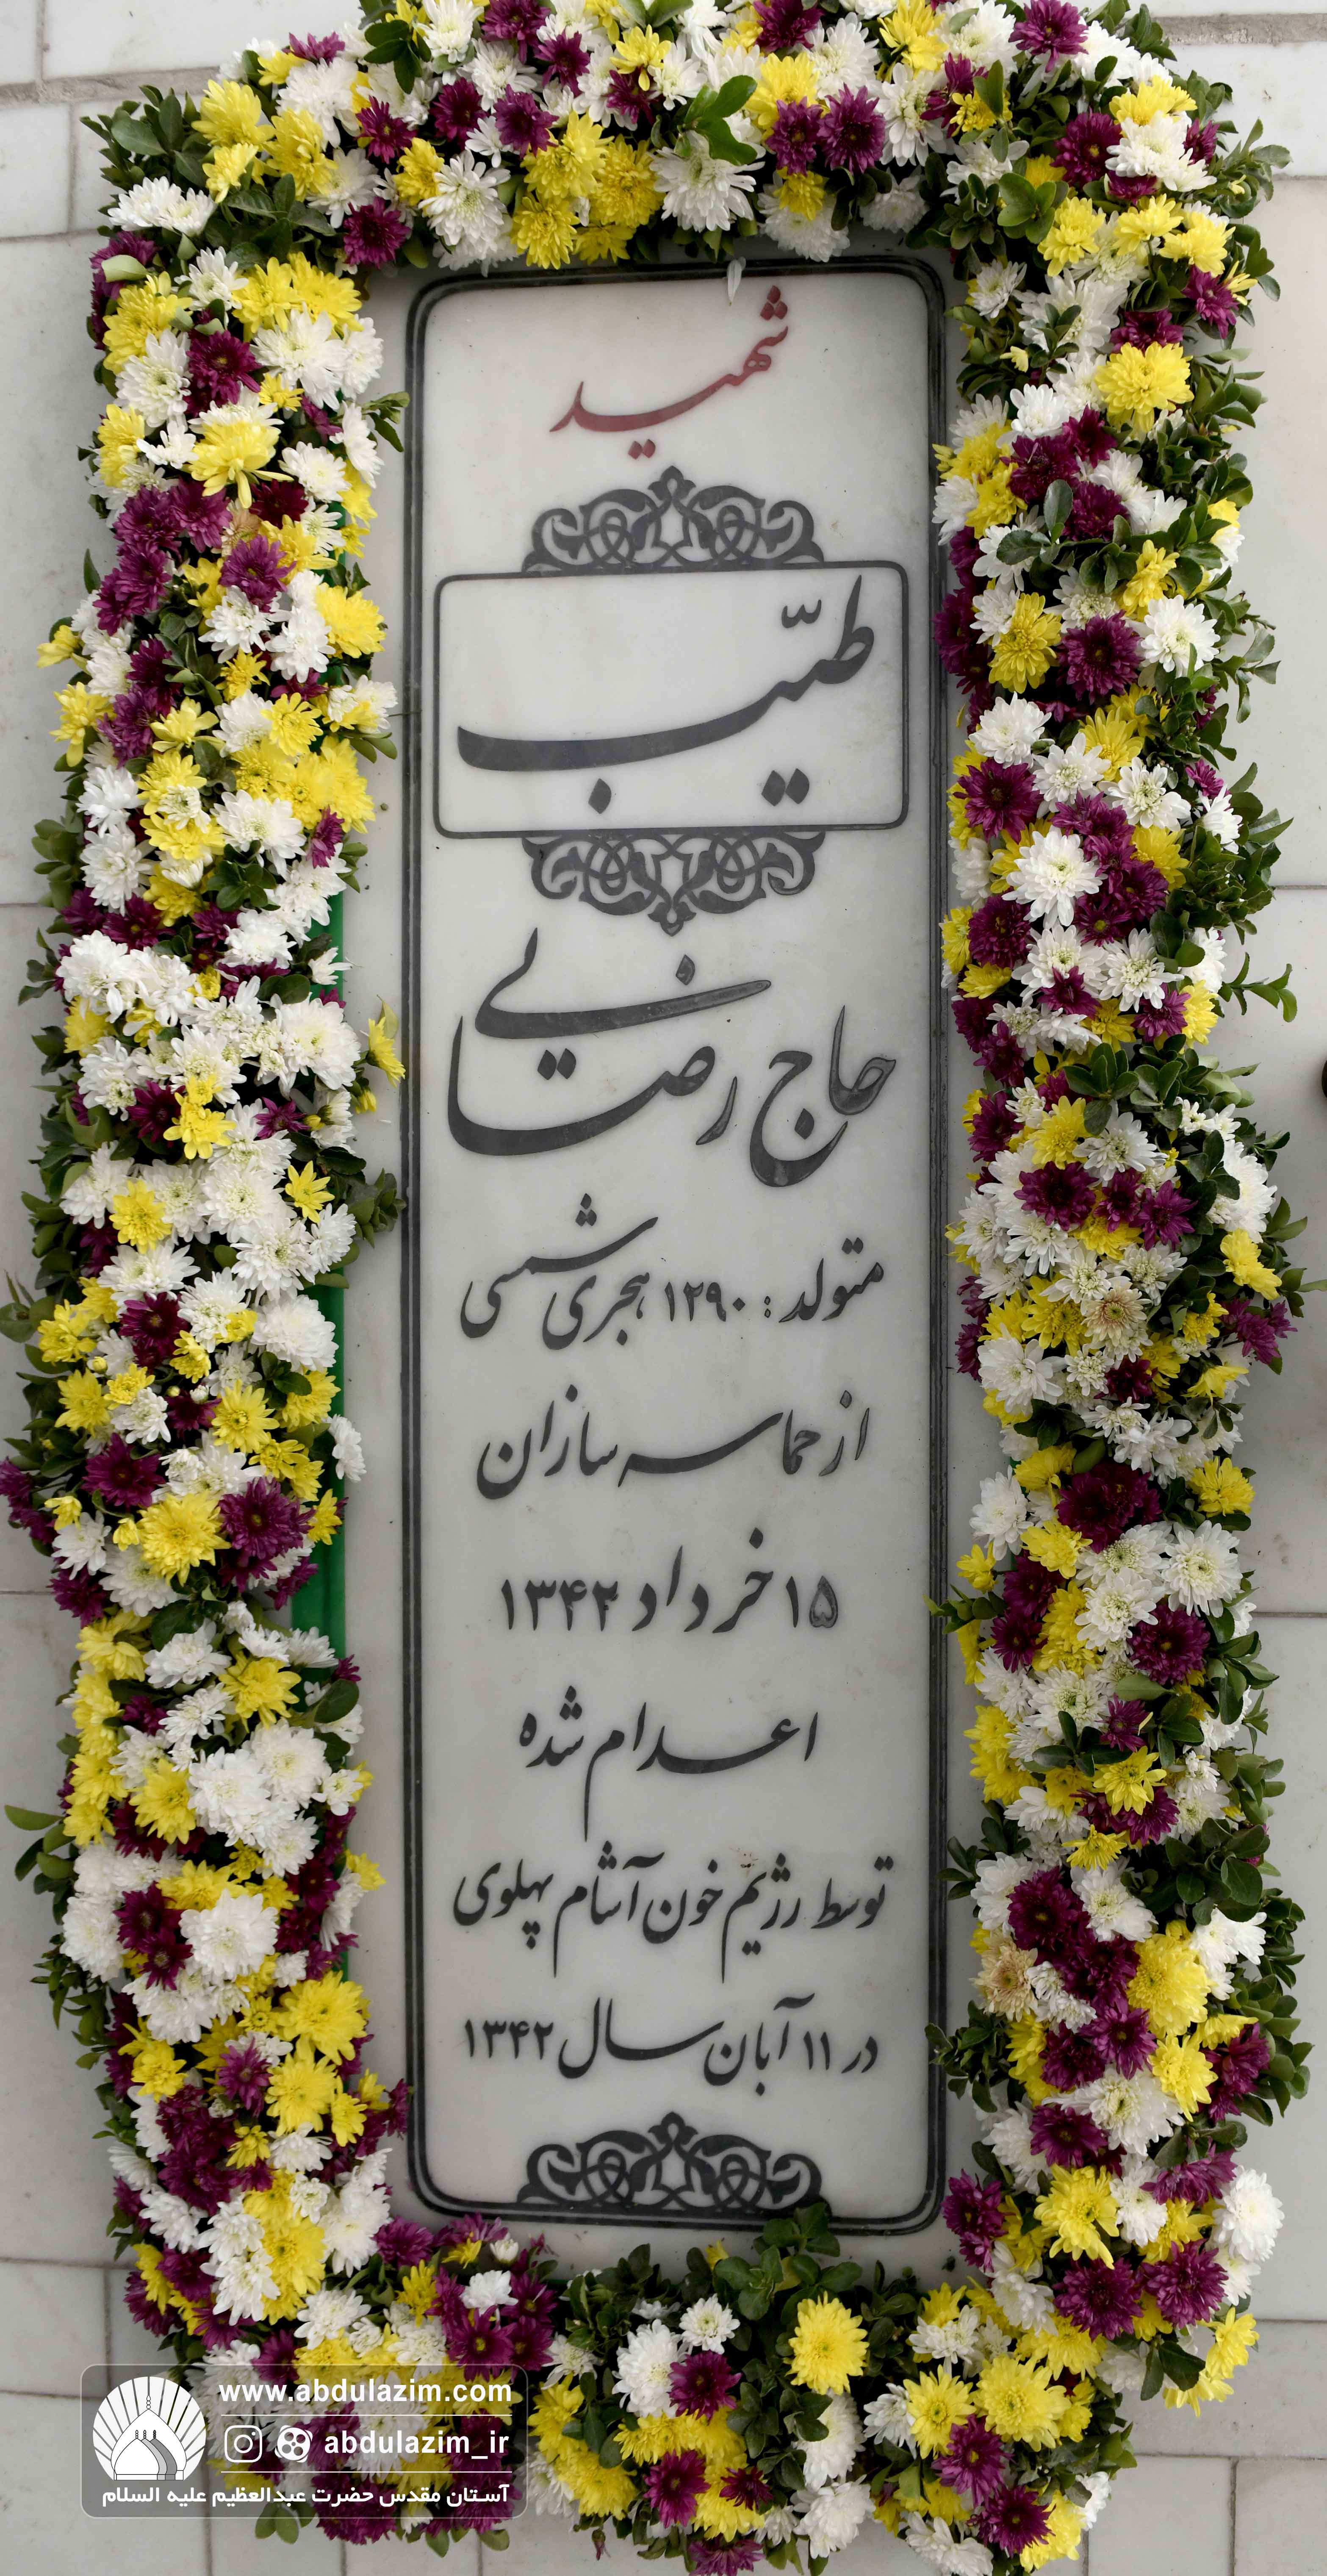 شهید
طیّب
حاج رضایی
متولد : ۱۲۹۰ هجری شمسی
از حماسه سازان
۱۵ خرداد ۱۳۴۲
اعدام شده
توسط رژیم خون آشام پهلوی
در ۱۱ آبان سال ۱۳۴۲
www.abdulazim.com
abdulazim_ir
آستان مقدس حضرت عبدالعظیم علیه السلام